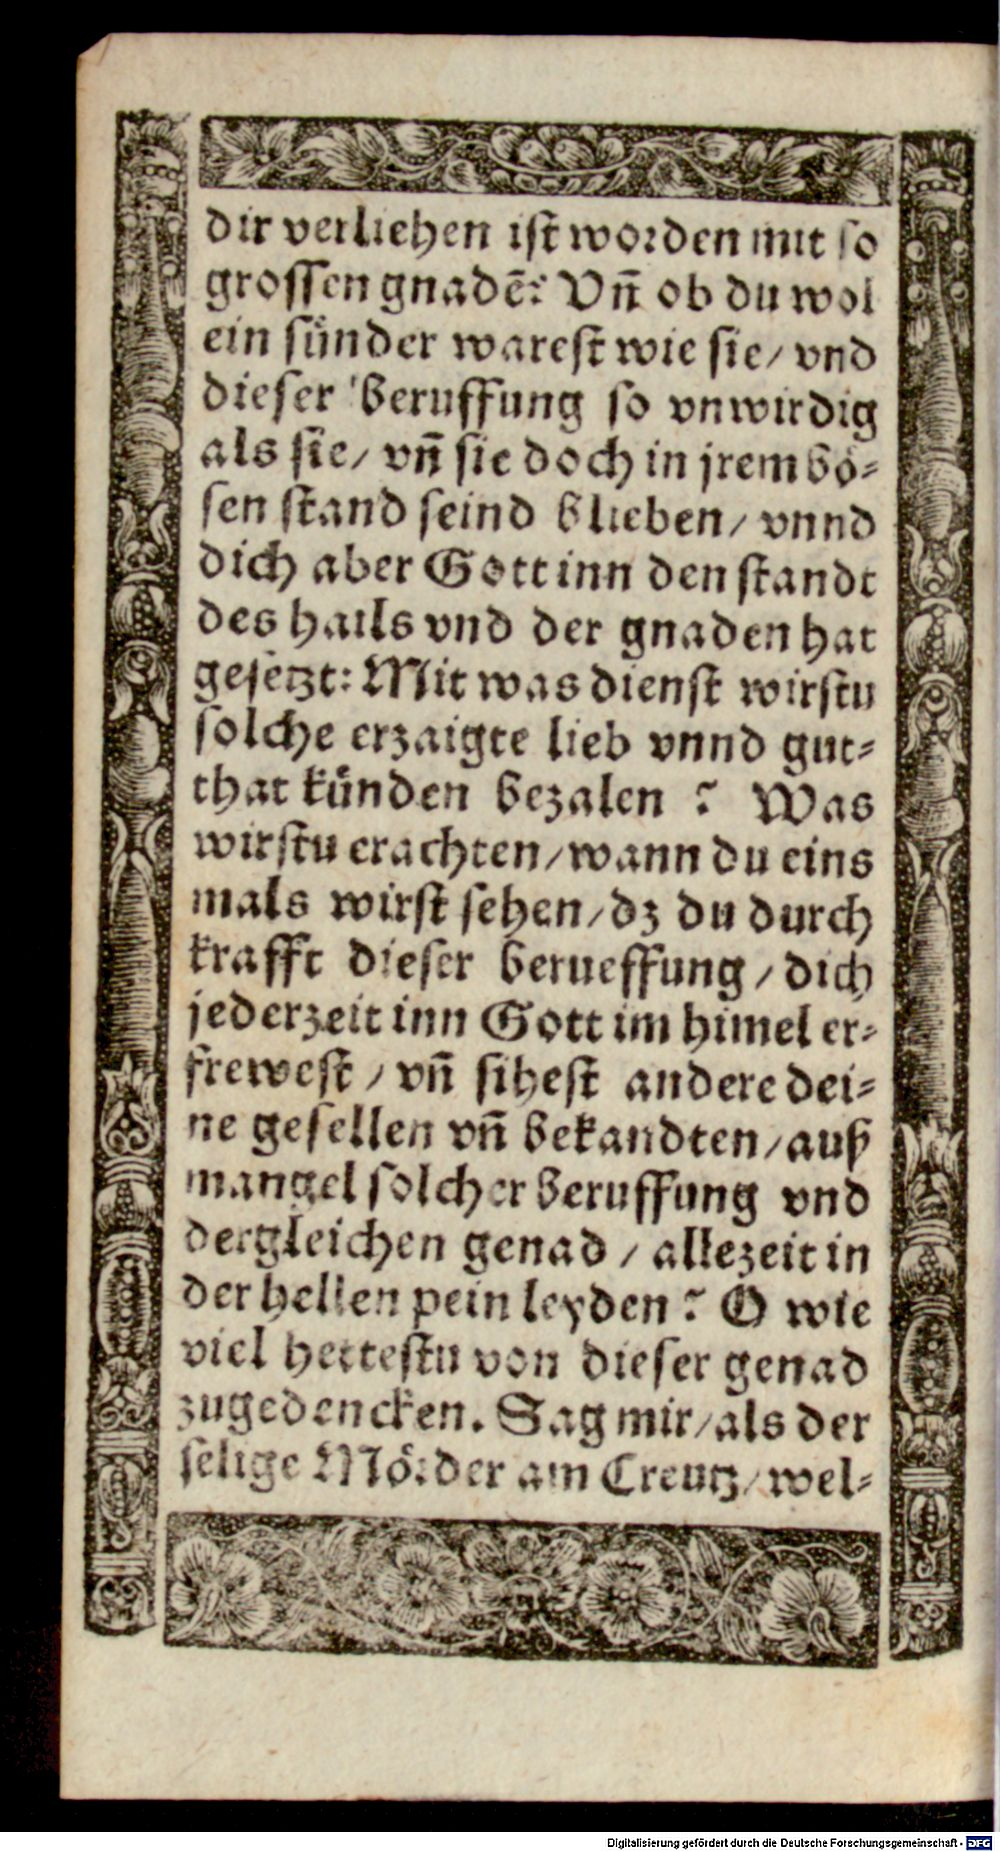 dir verliehen ist worden mit so
grossen gnadẽ: Vnñ ob du wol
ein sünder warest wie sie/ vnd
dieser beruffung so vnwirdig
als sie/ vnñ sie doch in jrem bö-
sen stand seind blieben/ vnnd
dich aber Gott inn den standt
des hails vnd der gnaden hat
gesetzt: Mit was dienst wirstu
solche erzaigte lieb vnnd gut-
that künden bezalen? Was
wirstu erachten/ wann du eins
mals wirst sehen/ dz du durch
krafft dieser berueffung/ dich
jederzeit inn Gott im himel er-
frewest/ vñ sihest andere dei-
ne gesellen vñ bekandten/ auß
mangel solcher beruffung vnd
dergleichen genad/ allezeit in
der hellen pein leyden? O wie
viel hettestu von dieser genad
zugedencken. Sag mir/ als der
selige Mörder am Creutz/ wel-
Digitalisierung gefördert durch die Deutsche Forschungsgemeinschaft - DFG